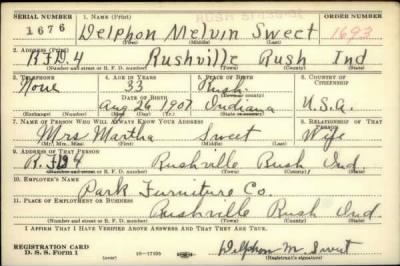 SERIAL NUMBER 1. NAME (Print) ORDER NUMBER
1676 Delphon Melvin Sweet 1693
(First) (Middle) (Last)
2. ADDRESS (Print)
R.F.D.4 Rushville Rush Ind
(Number and street or R. F. D. number) (Town) (County) (State)
3. TELEPHONE 4. AGE IN YEARS 5. PLACE OF BIRTH 6. COUNTRY OF CITIZENSHIP
None 33 Rush
DATE OF BIRTH (Town or county)
Aug 26 1907 Indiana U.S.A.
(Exchange) (Number) (Mo.) (Day) (Yr.) (State or country)
7. NAME OF PERSON WHO WILL ALWAYS KNOW YOUR ADDRESS 8. RELATIONSHIP OF THAT PERSON
Mrs Martha Sweet Wife
(Mr., Mrs., Miss) (First) (Middle) (Last)
9. ADDRESS OF THAT PERSON
R.F.D 4 Rushville Rush Ind.
(Number and street or R. F. D. number) (Town) (County) (State)
10. EMPLOYER'S NAME
Park Furniture Co.
11. PLACE OF EMPLOYMENT OR BUSINESS
Rushville Rush Ind.
(Number and street or R. F. D. number) (Town) (County) (State)
I AFFIRM THAT I HAVE VERIFIED ABOVE ANSWERS AND THAT THEY ARE TRUE.
REGISTRATION CARD
D. S. S. Form 1 16—17105 Delphon M. Sweet
(Registrant's signature)